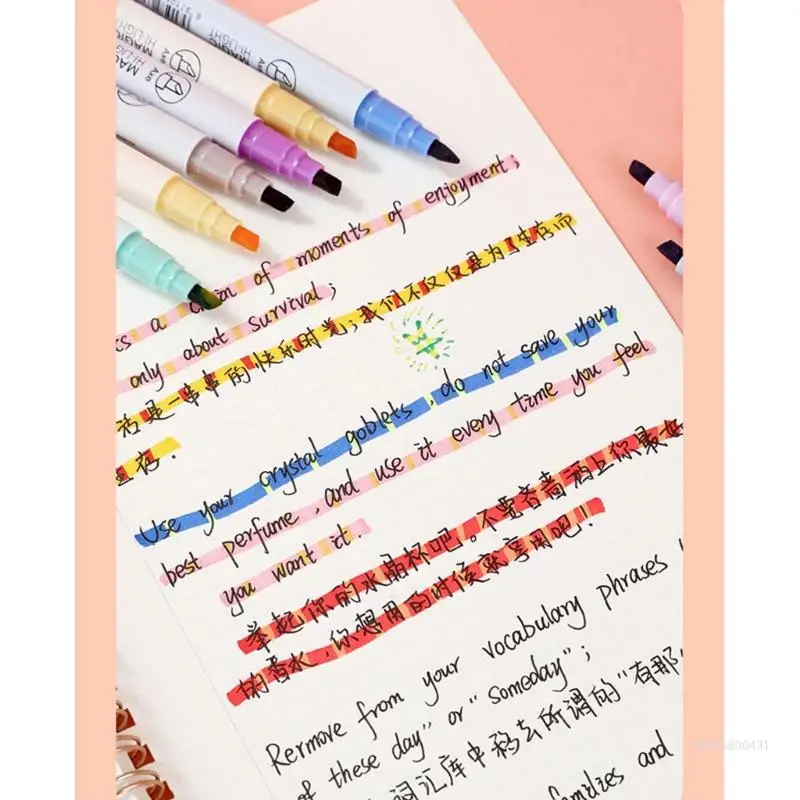 MAGIC
HI-LIGHT
MAGIC
HI-LIGHT
is a chain of moments of enjoyment;
only about survival;
活是一串串的快乐时光；我们不仅仅是为了生存而
生存.
Use your crystal goblets, do not save your
best perfume, and use it every time you feel
you want it.
举起你的水晶杯吧。不要吝啬洒上你最好
的香水，你想用的时候就享用吧！
Rermove from your vocabulary phrases
of these day" or "someday";
词汇库中移去所谓的"有那
families and